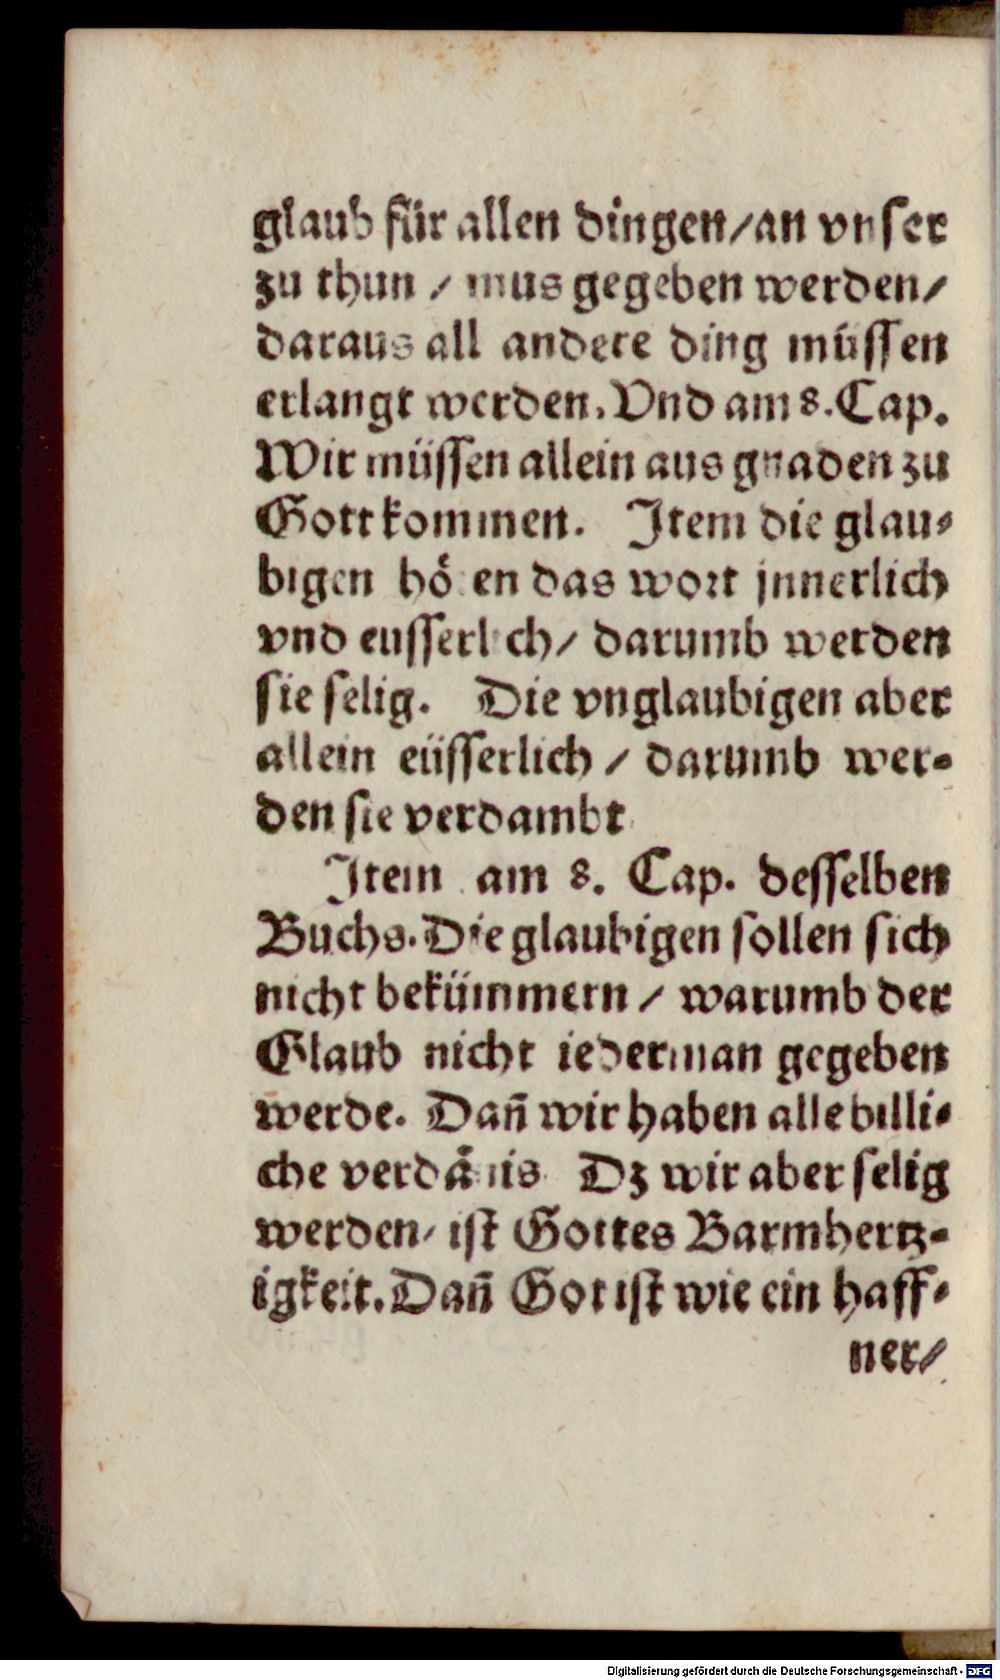 glaub für allen dingen/an vnser
zu thun / mus gegeben werden/
daraus all andere ding müssen
erlangt werden. Vnd am 8. Cap.
Wir müssen allein aus gnaden zu
Gott kommen. Item die glau⸗
bigen hören das wort jnnerlich
vnd eusserlich/ darumb werden
sie selig. Die vnglaubigen aber
allein eüsserlich / darumb wer⸗
den sie verdambt
Item am 8. Cap. desselben
Buchs. Die glaubigen sollen sich
nicht bekümmern / warumb der
Glaub nicht iederman gegeben
werde. Dañ wir haben alle billi⸗
che verdānis Dz wir aber selig
werden/ ist Gottes Barmhertz⸗
igkeit. Dañ Got ist wie ein haff⸗
ner/
Digitalisierung gefördert durch die Deutsche Forschungsgemeinschaft - DFG